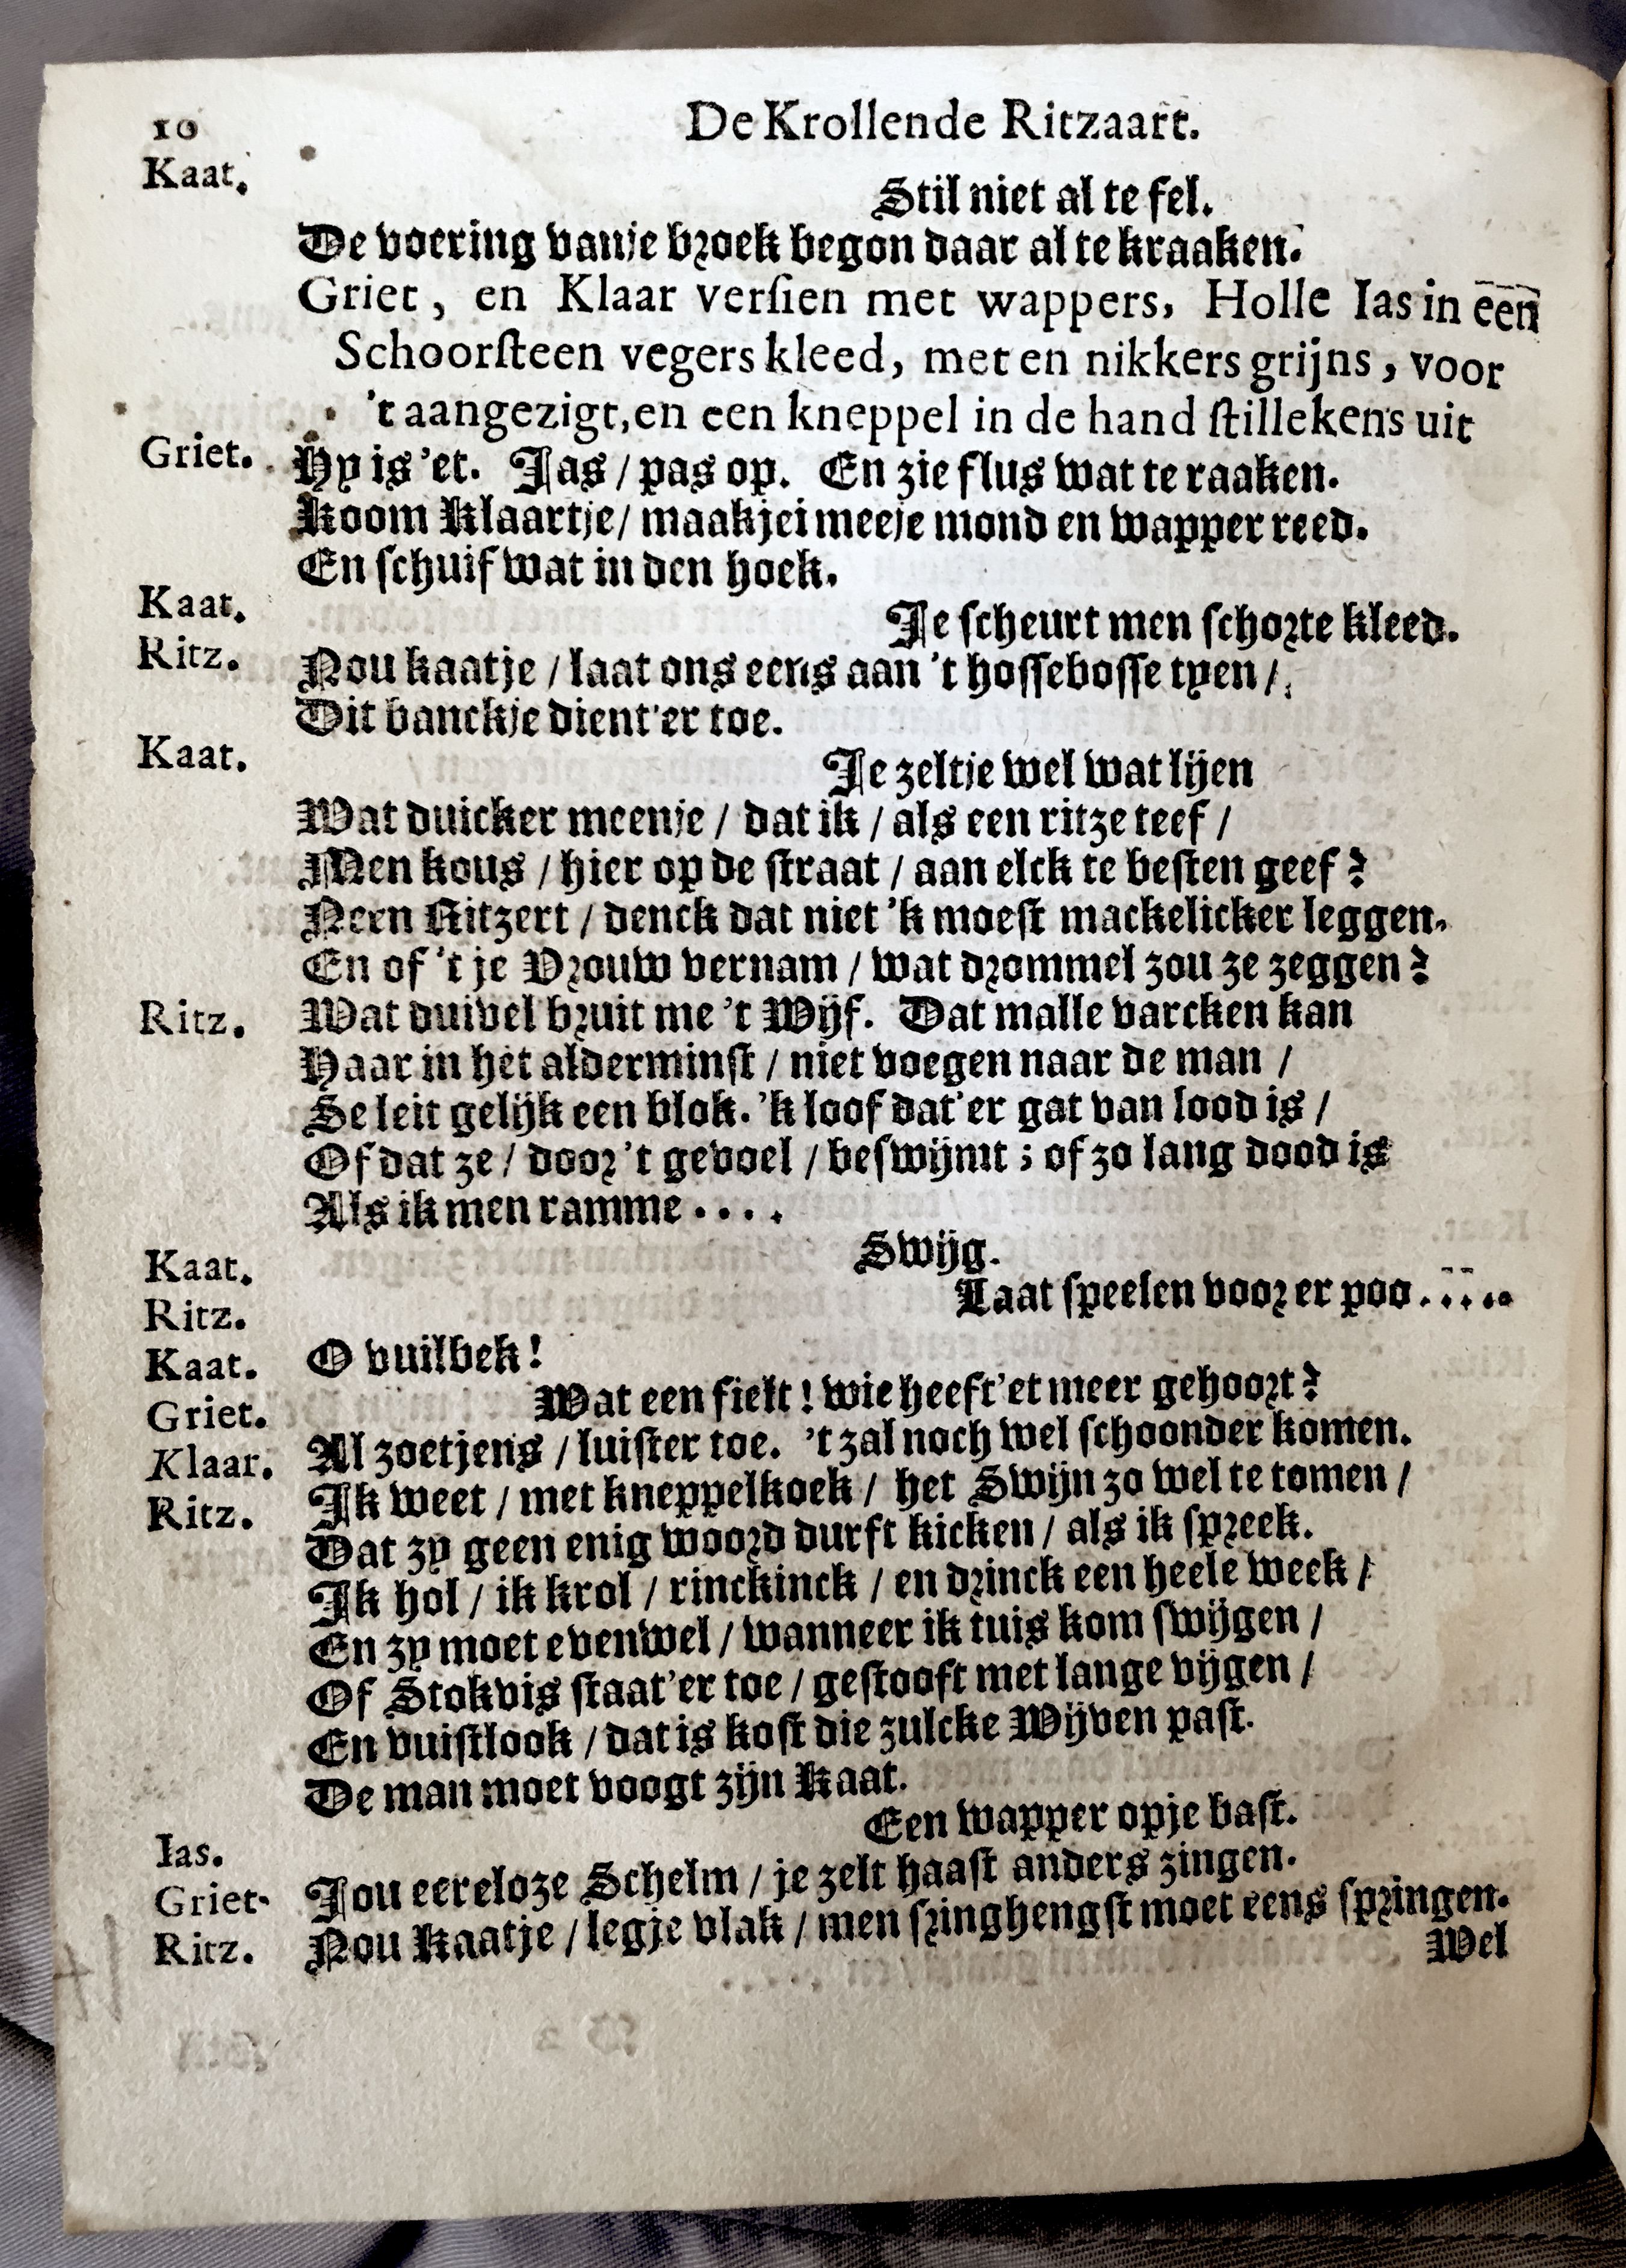 10 De Krollende Ritzaart.
Kaat. Stil niet al te fel.
De voering vanje broek begon daar al te kraaken.
Griet, en Klaar verſien met wappers, Holle Ias in een
Schoorſteen vegers kleed, met en nikkers grijns, voor
't aangezigt, en een kneppel in de hand ſtillekens uit
Griet. Hy is 'et. Jas / pas op. En zie flus wat te raaken.
Koom Klaartje / maakjei meeje mond en wapper reed.
En ſchuif wat in den hoek.
Kaat. Je ſcheurt men ſchorte kleed.
Ritz. Nou kaatje / laat ons eens aan 't hoſſeboſſe tyen /
Dit banckje dient'er toe.
Kaat. Je zeltje wel wat lijen
Wat duicker meenje / dat ik / als een ritze teef /
Men kous / hier op de ſtraat / aan elck te beſten geef?
Neen Ritzert / denck dat niet 'k moeſt mackelicker leggen.
En of 't je Vrouw vernam / wat drommel zou ze zeggen?
Ritz. Wat duivel bruit me 't Wijf. Dat malle varcken kan
Haar in het alderminſt / niet voegen naar de man /
Se leit gelijk een blok. 'k loof dat'er gat van lood is /
Of dat ze / door 't gevoel / beſwijmt; of zo lang dood is
Als ik men ramme . . . .
Kaat. Swijg.
Ritz. Laat ſpeelen voor er poo . . . . .
Kaat. O vuilbek!
Griet. Wat een fielt! wie heeft'et meer gehoort?
Klaar. Al zoetjens / luiſter toe. 't zal noch wel ſchoonder komen.
Ritz. Ik weet / met kneppelkoek / het Swijn zo wel te tomen /
Dat zy geen enig woord durft kicken / als ik ſpreek.
Ik hol / ik krol / rinckinck / en drinck een heele week /
En zy moet evenwel / wanneer ik tuis kom ſwijgen /
Of Stokvis ſtaat'er toe / geſtooft met lange vijgen /
En vuiſtlook / dat is koſt die zulcke Wijven paſt.
De man moet voogt zijn Kaat.
Ias. Een wapper opje baſt.
Griet. Jou eereloze Schelm / je zelt haaſt anders zingen.
Ritz. Nou Kaatje / legje vlak / men ſpringhengſt moet eens ſpringen.
Wel